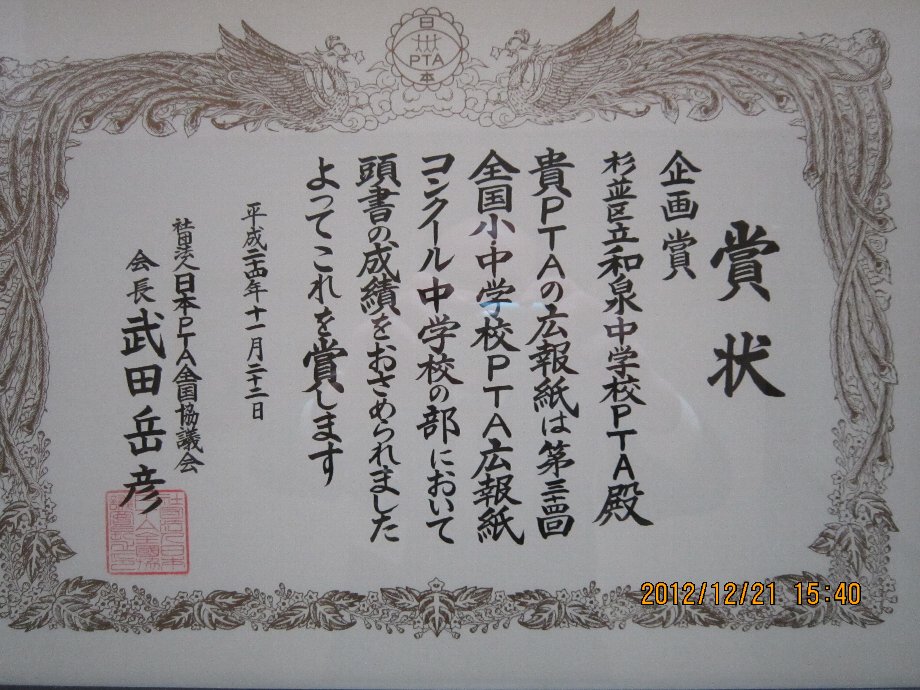 日
PTA
本
賞状
企画賞
杉並区立和泉中学校PTA殿
貴PTAの広報紙は第三十四回
全国小・中学校PTA広報紙
コンクール中学校の部において
頭書の成績をおさめられました
よってこれを賞します
平成二十四年十一月二十二日
社団法人日本PTA全国協議会
会長 武田岳彦
2012/12/21 15:40